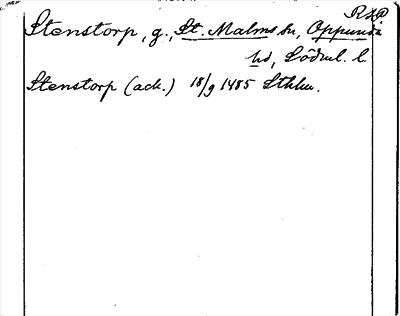 RAP
Stenstorp, g., St. Malms sn, Oppunda
hd, Södml. l.
Stenstorp (ack.) 18/9 1485 Sthlm.